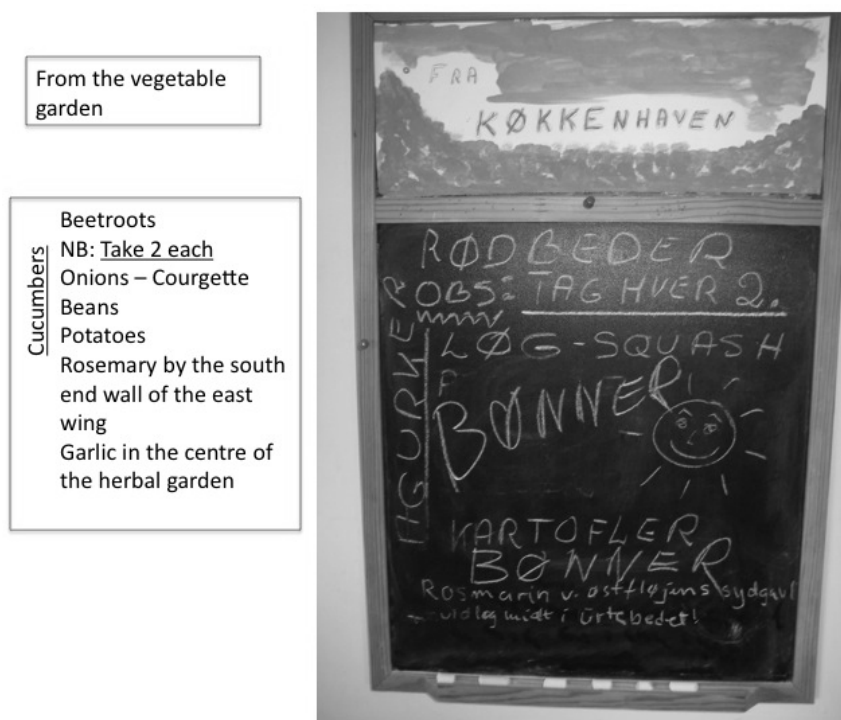 From the vegetable
garden
Beetroots
NB: Take 2 each
Onions – Courgette
Beans
Potatoes
Rosemary by the south
end wall of the east
wing
Garlic in the centre of
the herbal garden
Cucumbers
FRA
KØKKENHAVEN
RØDBEDER
OBS: TAG HVER 2.
LØG-SQUASH
BØNNER
AGURKER
KARTOFLER
BØNNER
Rosmarin v. østfløjens sydgavl
midt i urtebedet!